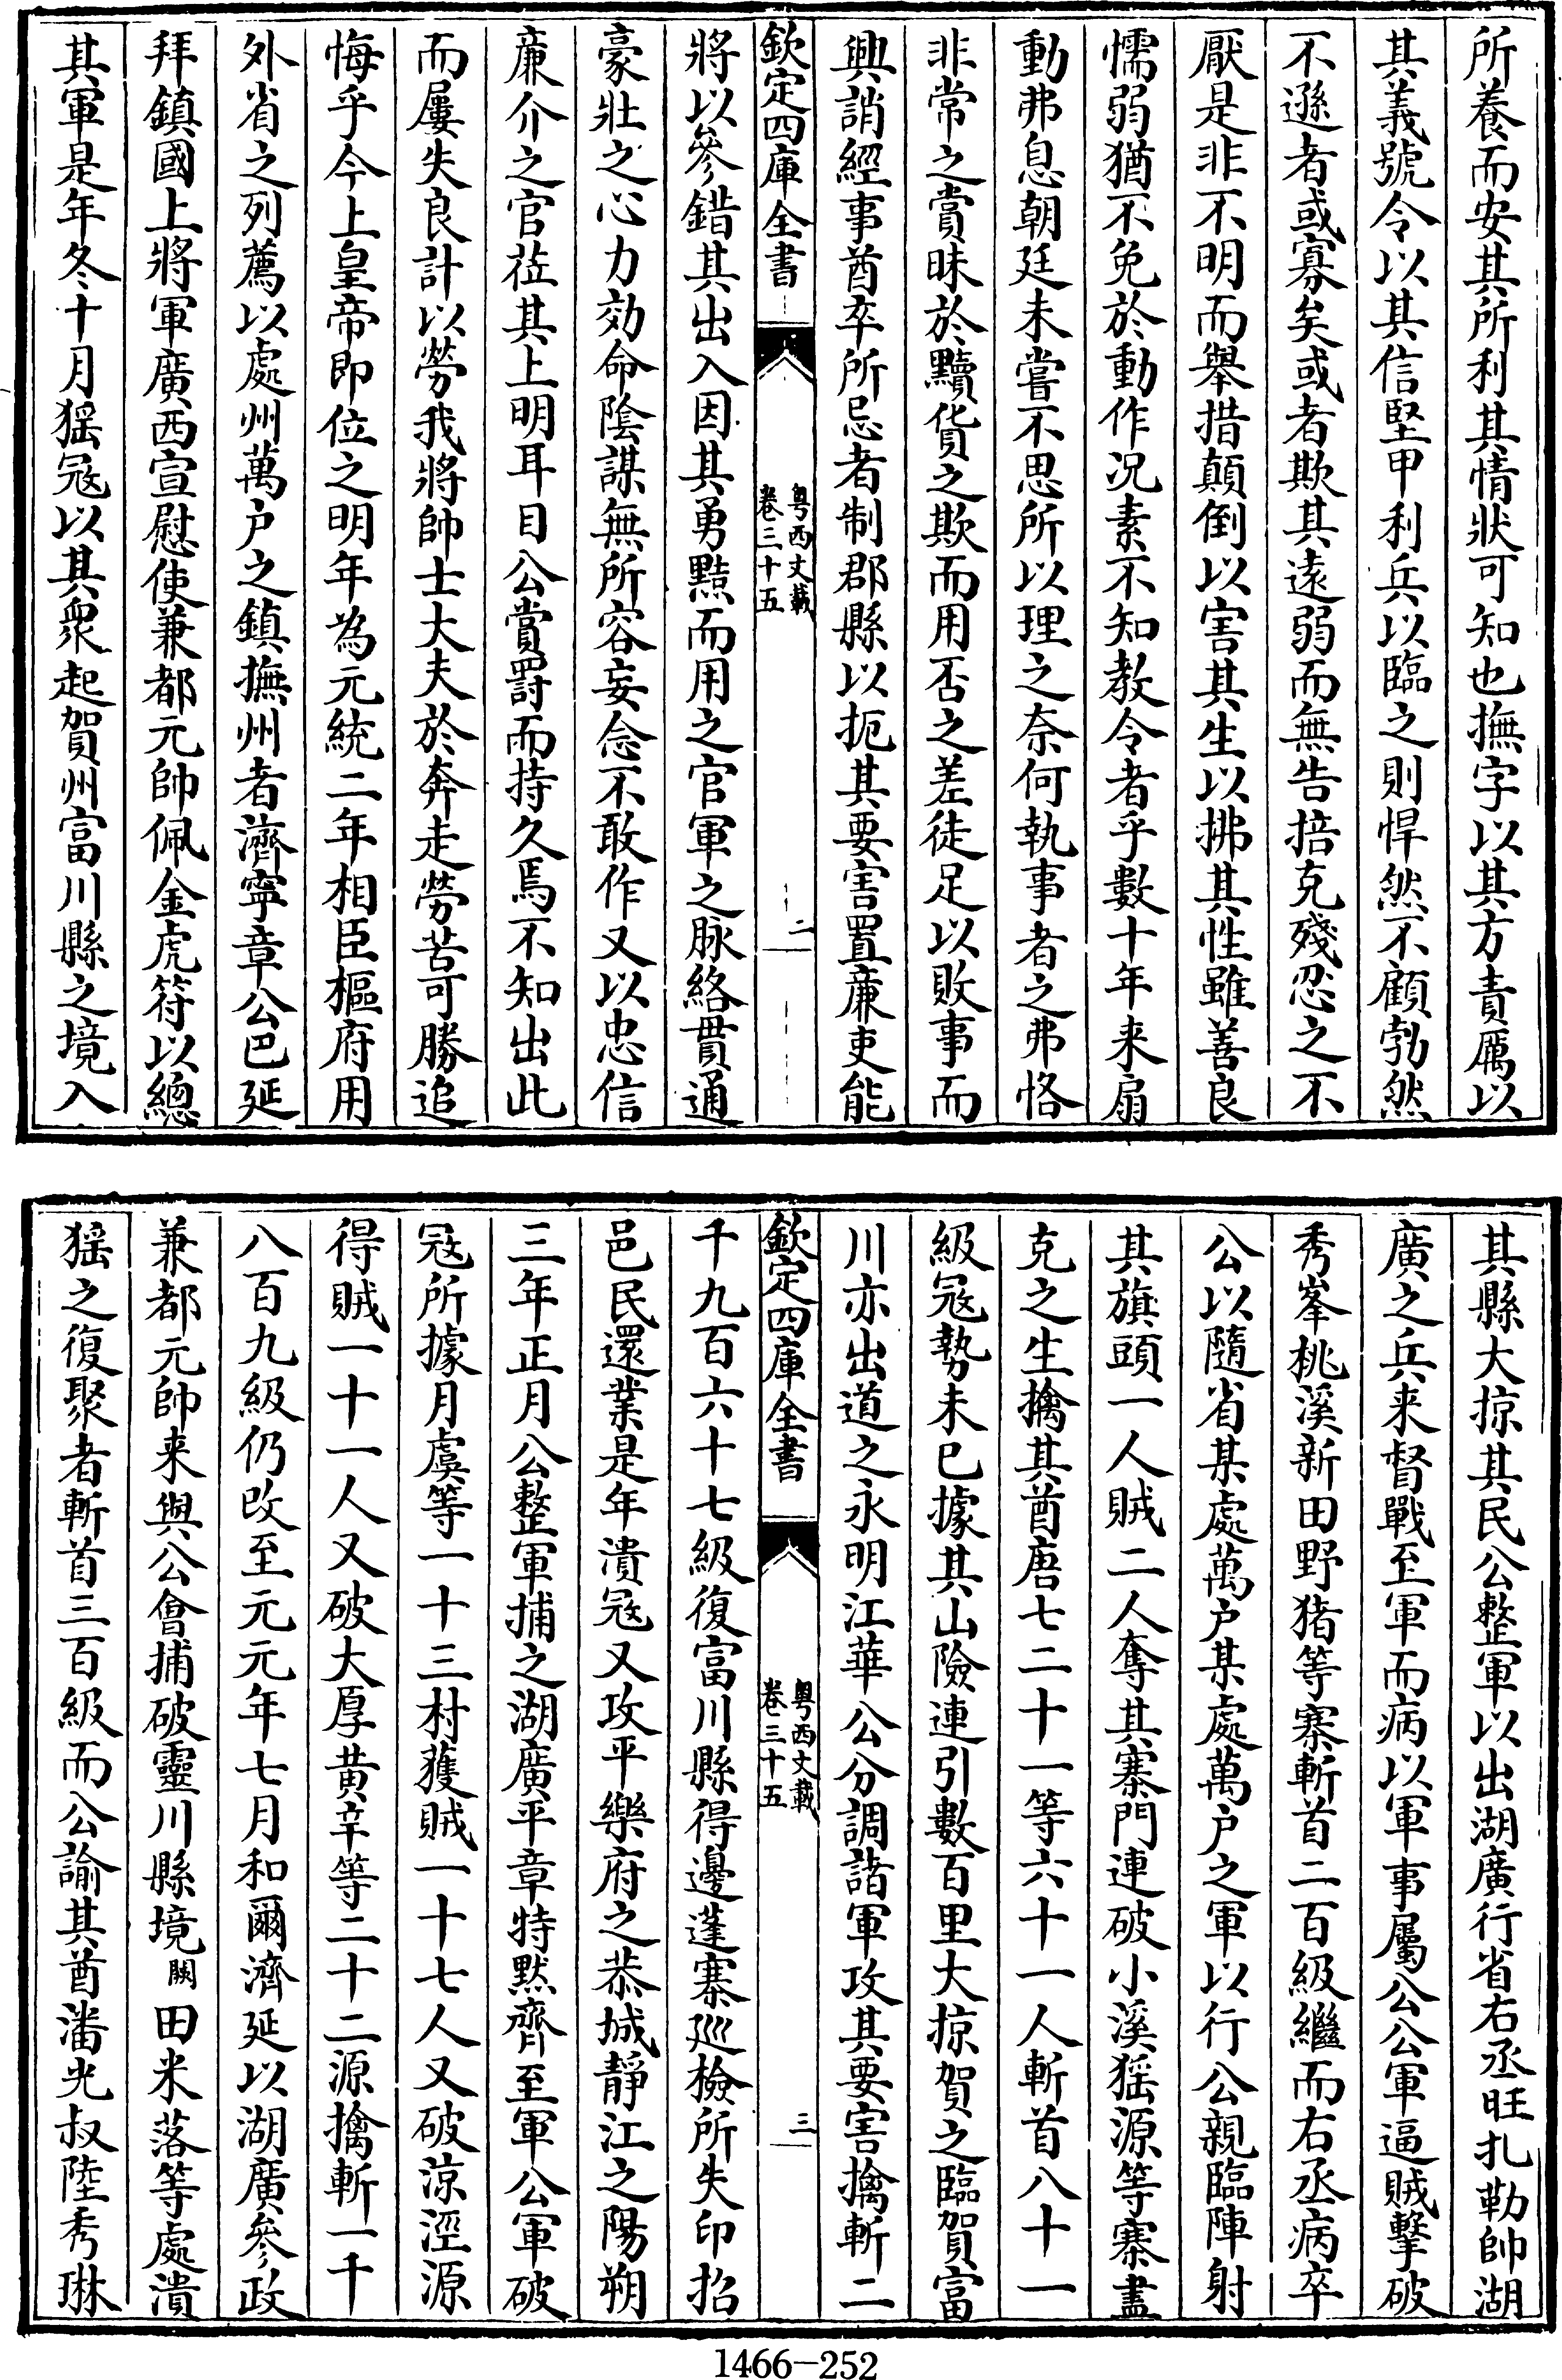 所養而安其所利其情狀可知也撫字以其方責厲以
其義號令以其信堅甲利兵以臨之則悍然不顧勃然
不遜者或寡矣或者欺其遠弱而無告掊克殘忍之不
厭是非不明而舉措顛倒以害其生以拂其性雖善良
懦弱猶不免於動作况素不知教令者乎數十年来扇
動弗息朝廷未嘗不思所以理之奈何執事者之弗恪
非常之賞昧於黷貨之欺而用否之差徒足以敗事而
興誚經事酋卒所忌者制郡縣以扼其要害置亷吏能
欽定四庫全書
粤西文載
卷三十五
二
將以參錯其出入因其勇黠而用之官軍之脉絡貫通
豪壯之心力効命陰謀無所容妄念不敢作又以忠信
亷介之官莅其上明耳目公賞罸而持久焉不知出此
而屢失良計以勞我將帥士大夫於奔走勞苦可勝追
悔乎今上皇帝即位之明年為元統二年相臣樞府用
外省之列薦以處州萬户之鎮撫州者濟寧章公巴延
拜鎮國上將軍廣西宣慰使兼都元帥佩金虎符以總
其軍是年冬十月猺冦以其衆起賀州富川縣之境入
其縣大掠其民公整軍以出湖廣行省右丞旺扎勒帥湖
廣之兵来督戰至軍而病以軍事屬公公軍逼賊擊破
秀峯桃溪新田野猪等寨斬首二百級繼而右丞病卒
公以隨省某處萬户某處萬户之軍以行公親臨陣射
其旗頭一人賊二人奪其寨門連破小溪猺源等寨盡
克之生擒其酋唐七二十一等六十一人斬首八十一
級冦勢未已據其山險連引數百里大掠賀之臨賀富
川亦出道之永明江華公分調諸軍攻其要害擒斬二
欽定四庫全書
粤西文載
卷三十五
三
千九百六十七級復富川縣得邊蓬寨巡檢所失印招
邑民還業是年潰冦又攻平樂府之恭城靜江之陽朔
三年正月公整軍捕之湖廣平章特黙齊至軍公軍破
冦所據月虞等一十三村獲賊一十七人又破涼涇源
得賊一十一人又破大厚黄辛等二十二源擒斬一千
八百九級仍改至元元年七月和爾濟延以湖廣參政
兼都元帥来與公會捕破靈川縣境闕田米落等處潰
猺之復聚者斬首三百級而公諭其酋潘光叔陸秀琳
1466-252